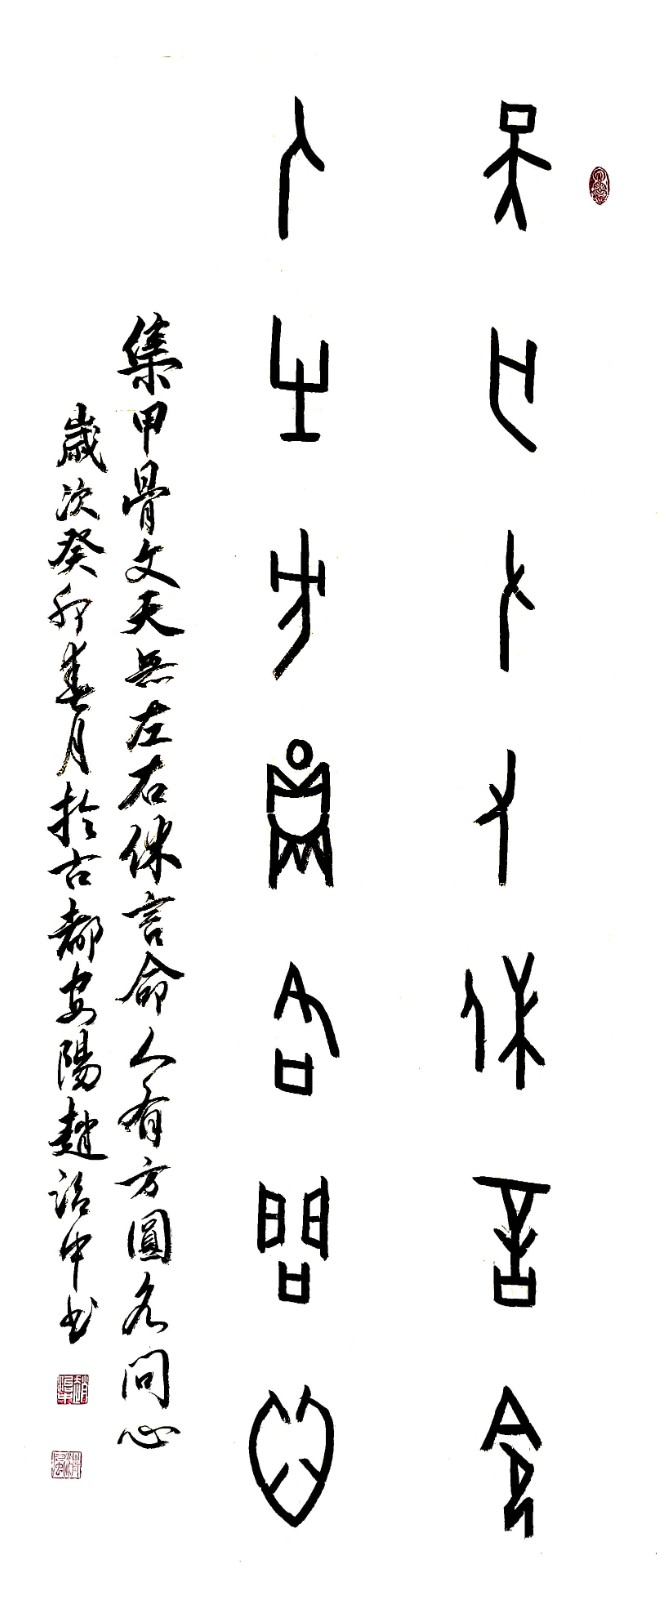 天無左右休言命
人有方圓各問心
集甲骨文天無左右休言命人有方圓各问心
歲次癸卯春月於古都安陽趙中书